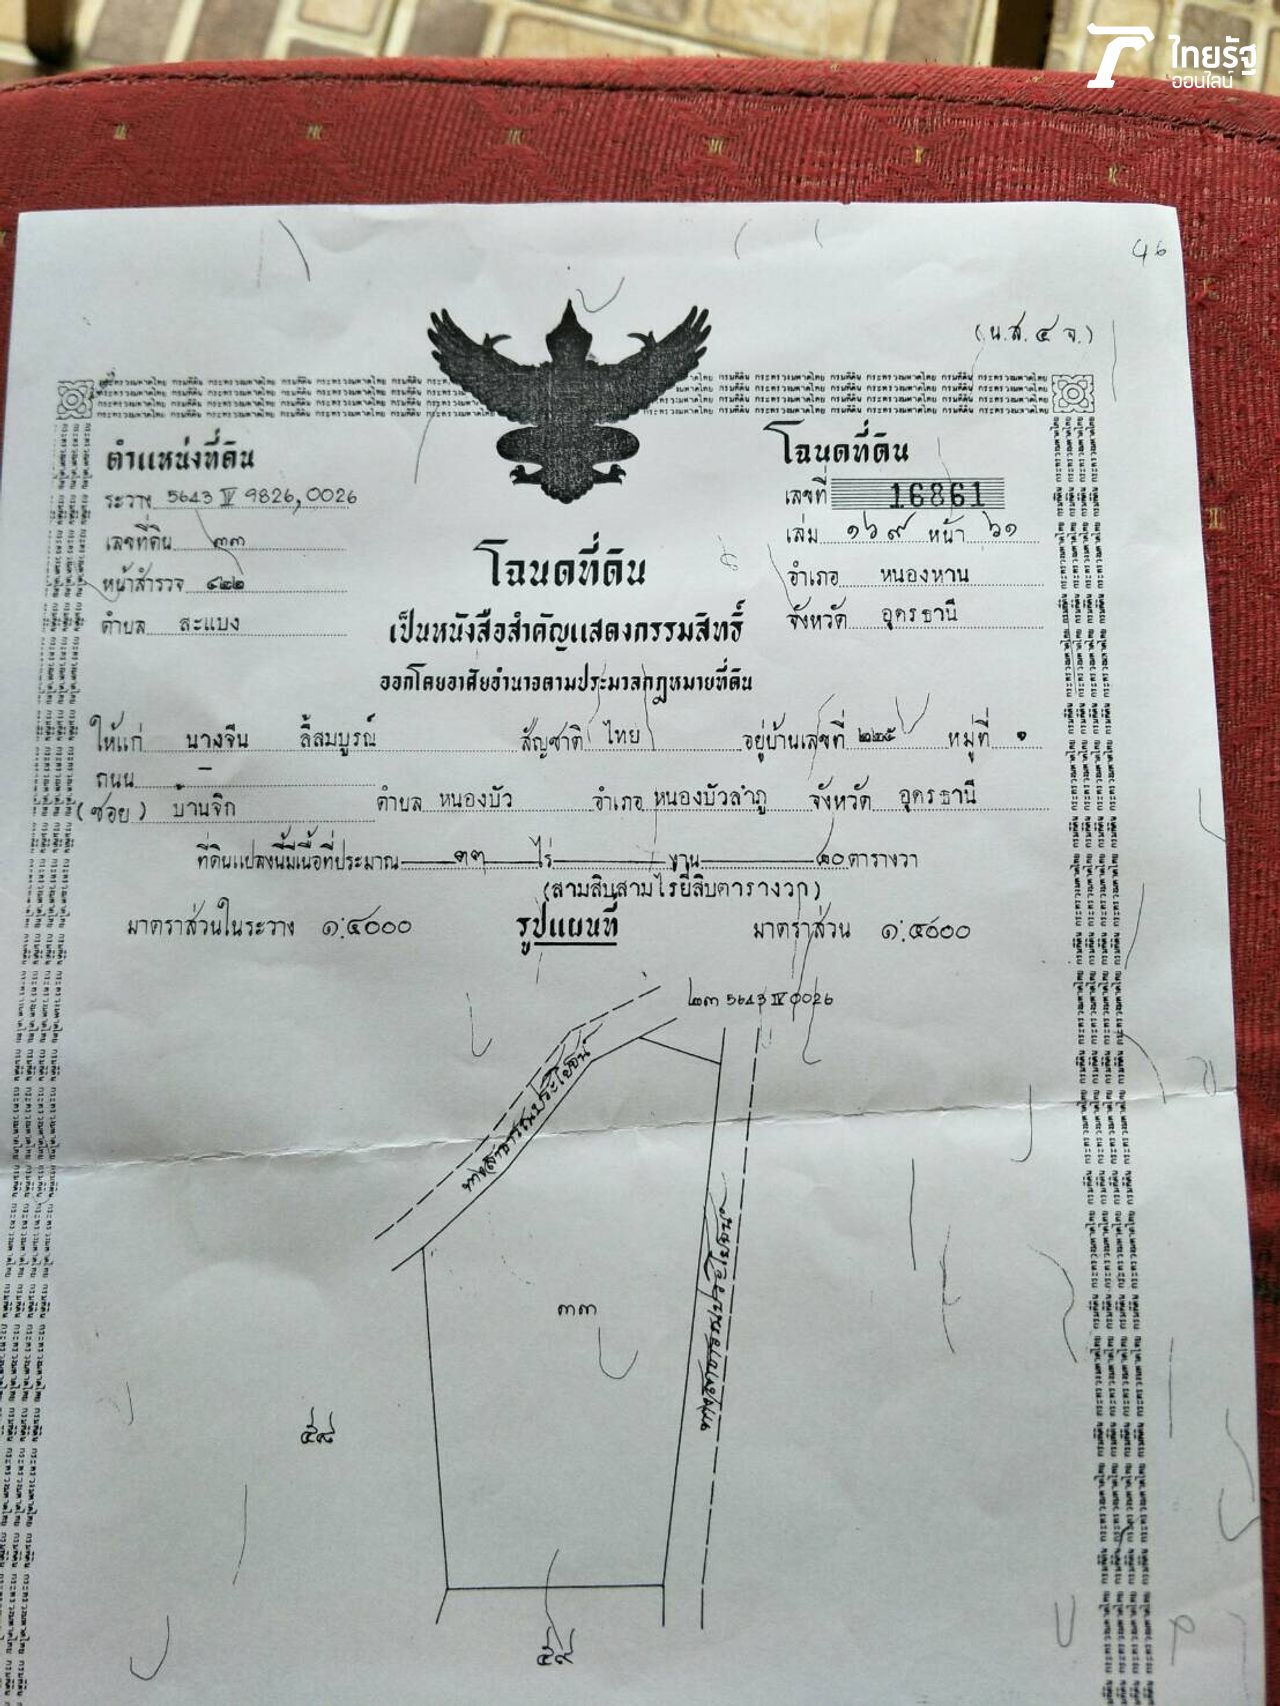 ไทยรัฐ
ออนไลน์
46
(น.ส.๔ จ.)
ตำแหน่งที่ดิน
ระวาง 5643 IV 9826,0026
เลขที่ดิน ๓๓
หน้าสำรวจ ๔๒๒
ตำบล สะแบง
โฉนดที่ดิน
เลขที่ 16861
เล่ม ๑๖๙ หน้า ๖๑
อำเภอ หนองหาน
จังหวัด อุดรธานี
โฉนดที่ดิน
เป็นหนังสือสำคัญแสดงกรรมสิทธิ์
ออกโดยอาศัยอำนาจตามประมวลกฎหมายที่ดิน
ให้แก่ นางจีน ลี้สมบูรณ์ สัญชาติ ไทย อยู่บ้านเลขที่ ๒๒๕ หมู่ที่ ๑
ถนน –
(ซอย) บ้านจิก ตำบล หนองบัว อำเภอ หนองบัวลำภู จังหวัด อุดรธานี
ที่ดินแปลงนี้มีเนื้อที่ประมาณ ๓๓ ไร่ งาน ๒๐ ตารางวา
(สามสิบสามไร่ยี่สิบตารางวา)
มาตราส่วนในระวาง ๑:๔๐๐๐ รูปแผนที่ มาตราส่วน ๑:๔๐๐๐
๒๓ 5643 IV 0026
ทางสาธารณประโยชน์
๓๓
๕๘
๕๙